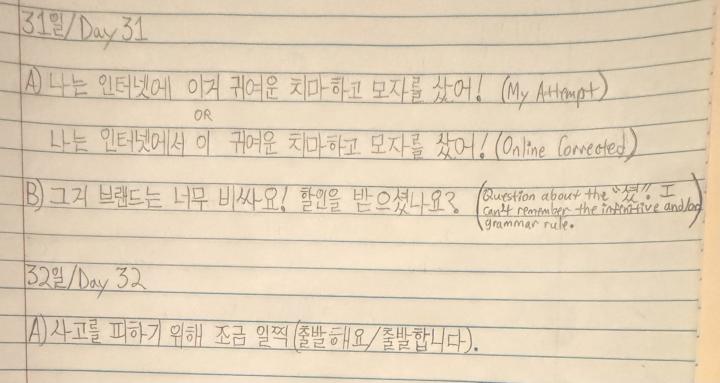 31일/Day 31
A) 나는 인터넷에 이거 귀여운 치마하고 모자를 샀어! (My Attempt)
OR
나는 인터넷에서 이 귀여운 치마하고 모자를 샀어! (Online Corrected)
B) 그거 브랜드는 너무 비싸요! 할인을 받으셨나요? (Question about the "셨". I
can't remember the infinitive and/or
grammar rule.)
32일/Day 32
A) 사고를 피하기 위해 조금 일찍 (출발해요/출발합니다).